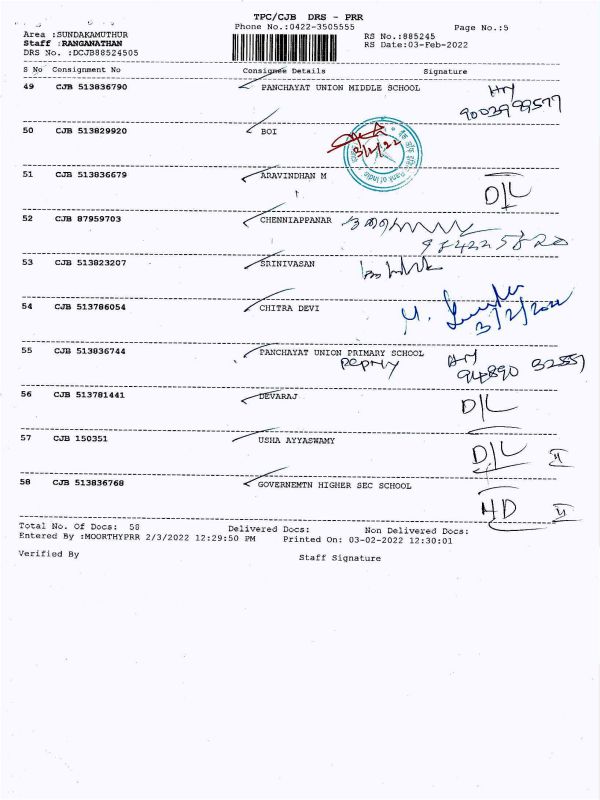 TPC/CJB DRS - PRR
Phone No.:0422-3505555 Page No.:5
Area :SUNDAKAMUTHUR RS No.:885245
Staff :RANGANATHAN RS Date:03-Feb-2022
DRS No. :DCJB88524505
S No Consignment No Consignee Details Signature
49 CJB 513836790 PANCHAYAT UNION MIDDLE SCHOOL
50 CJB 513829920 BOI
3/2/22
Bank of India
51 CJB 513836679 ARAVINDHAN M D/L
52 CJB 87959703 CHENNIAPPANAR
53 CJB 513823207 SRINIVASAN
54 CJB 513786054 CHITRA DEVI
3/2/2022
55 CJB 513836744 PANCHAYAT UNION PRIMARY SCHOOL
56 CJB 513781441 DEVARAJ D/L
57 CJB 150351 USHA AYYASWAMY D/L II
58 CJB 513836768 GOVERNEMTN HIGHER SEC SCHOOL HD II
Total No. Of Docs: 58 Delivered Docs: Non Delivered Docs:
Entered By :MOORTHYPRR 2/3/2022 12:29:50 PM Printed On: 03-02-2022 12:30:01
Verified By Staff Signature